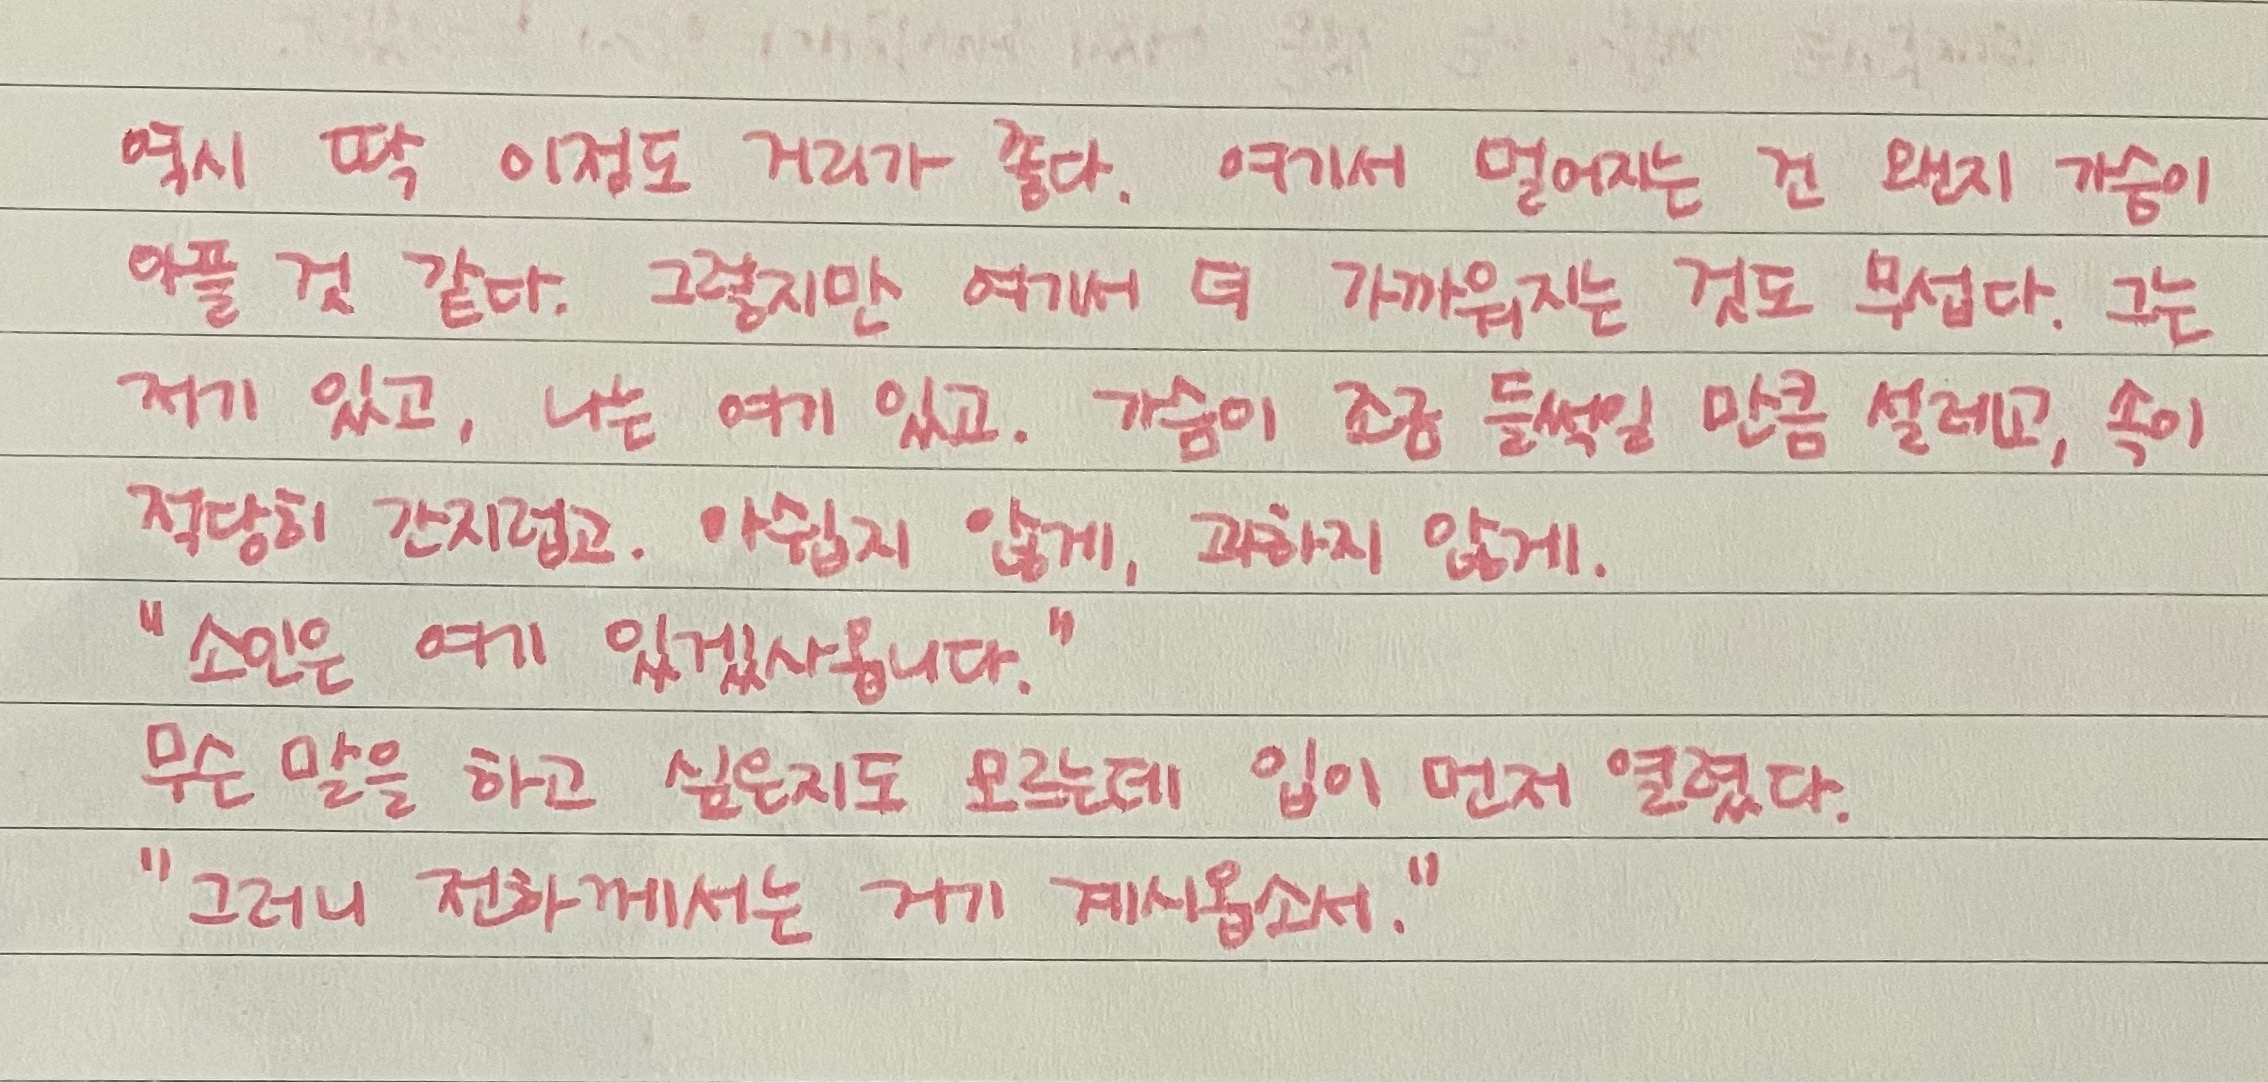 역시 딱 이정도 거리가 좋다. 여기서 멀어지는 건 왠지 가슴이
아플 것 같다. 그렇지만 여기서 더 가까워지는 것도 무섭다. 그는
저기 있고, 나는 여기 있고. 가슴이 조금 들썩일 만큼 설레고, 속이
적당히 간지럽고. 아쉽지 않게, 과하지 않게.
"소인은 여기 있겠사옵니다."
무슨 말을 하고 싶은지도 모르는데 입이 먼저 열렸다.
"그러니 전하께서는 거기 계시옵소서."